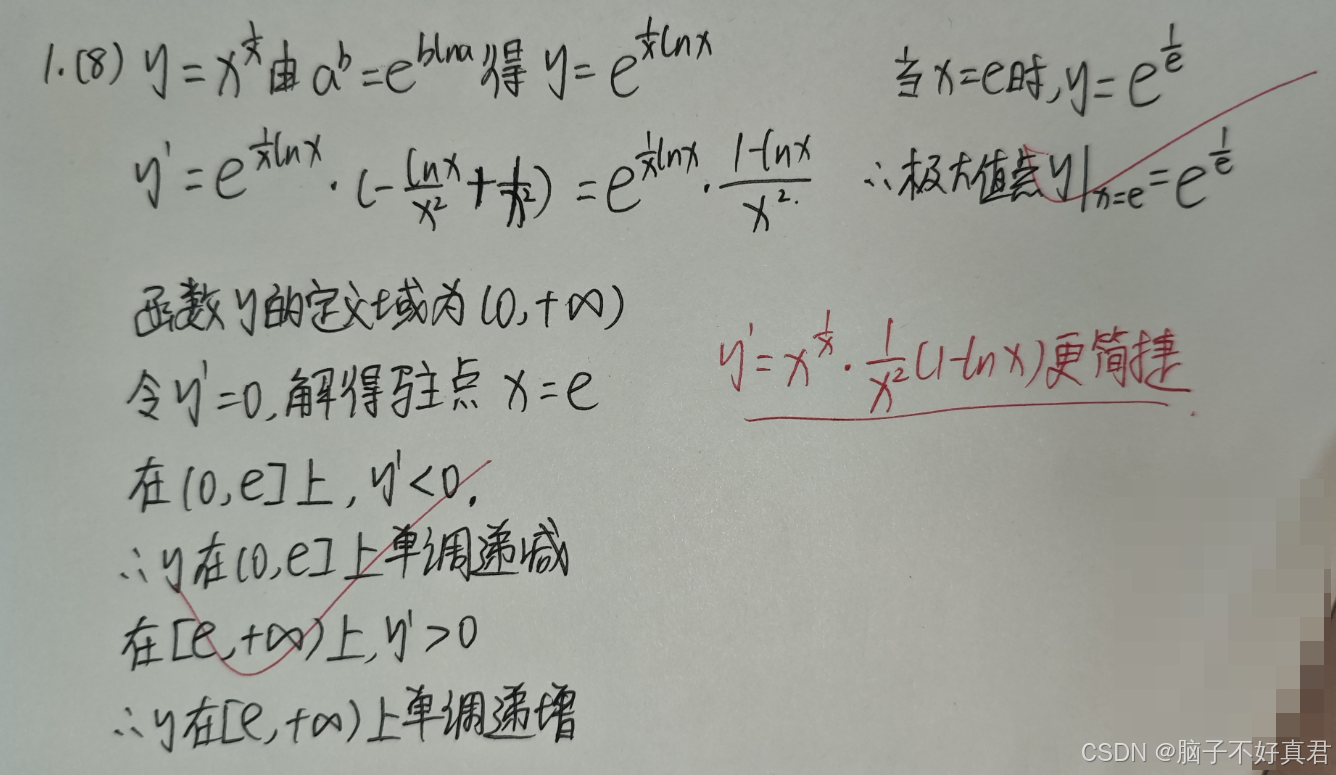 1.(8) y = x^{\frac{1}{x}} 由 a^b = e^{b\ln a} 得 y = e^{\frac{1}{x}\ln x}
y' = e^{\frac{1}{x}\ln x} · (-\frac{\ln x}{x^2} + \frac{1}{x^2}) = e^{\frac{1}{x}\ln x} · \frac{1-\ln x}{x^2}.
函数 y 的定义域为 (0,+∞)
令 y' = 0, 解得驻点 x = e
在 (0,e] 上, y' < 0.
∴ y 在 (0,e] 上单调递减
在 [e,+∞) 上, y' > 0
∴ y 在 [e,+∞) 上单调递增
当 x = e 时, y = e^{\frac{1}{e}}
∴ 极大值点 y|_{x=e} = e^{\frac{1}{e}}
y' = x^{\frac{1}{x}} · \frac{1}{x^2}(1-\ln x) 更简捷.
CSDN @脑子不好真君